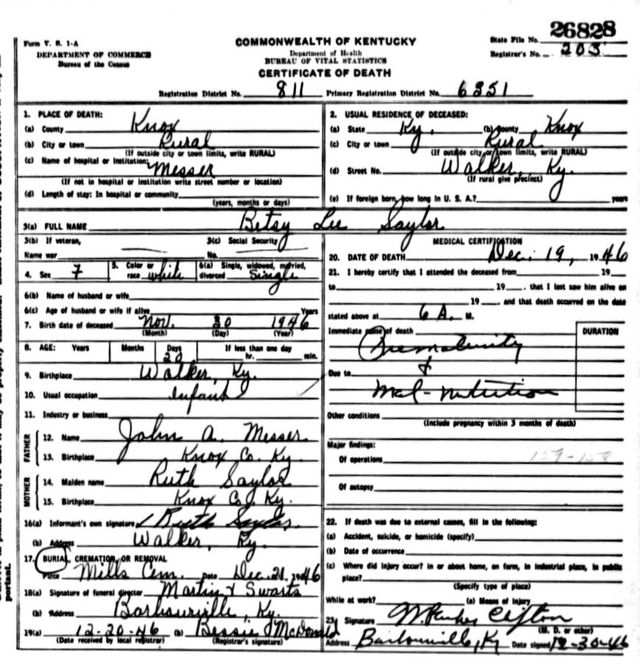 26828
Form V. S. 1-A
COMMONWEALTH OF KENTUCKY
State File No.
DEPARTMENT OF COMMERCE
Bureau of the Census
Department of Health
BUREAU OF VITAL STATISTICS
Registrar's No. 203
CERTIFICATE OF DEATH
Registration District No. 811 Primary Registration District No. 6351
1. PLACE OF DEATH:
(a) County Knox
(b) City or town Rural
(If outside city or town limits, write RURAL)
(c) Name of hospital or institution: Messer
(If not in hospital or institution write street number or location)
(d) Length of stay: In hospital or community
(years, months or days)
2. USUAL RESIDENCE OF DECEASED:
(a) State Ky. (b) County Knox
(c) City or town Rural
(If outside city or town limits, write RURAL)
(d) Street No. Walker, Ky.
(If rural give precinct)
(e) If foreign born, how long in U. S. A.? years
3(a) FULL NAME Betsy Lee Saylor
3(b) If veteran,
Name war
3(c) Social Security
4. Sex F 5. Color or race white 6(a) Single, widowed, married, divorced Single
6(b) Name of husband or wife
6(c) Age of husband or wife if alive Years
7. Birth date of deceased Nov. 30 1946
(Month) (Day) (Year)
8. AGE: Years Months Days If less than one day
20 hr. min.
9. Birthplace Walker, Ky.
10. Usual occupation Infant
11. Industry or business
FATHER
12. Name John A. Messer
13. Birthplace Knox Co. Ky.
MOTHER
14. Maiden name Ruth Saylor
15. Birthplace Knox Co. Ky.
16(a) Informant's own signature Ruth Saylor
(b) Address Walker, Ky.
17. BURIAL, CREMATION, OR REMOVAL
Place Mills Cem. Date Dec. 21, 1946
18(a) Signature of funeral director Martin & Swarts
(b) Address Barbourville, Ky.
19(a) 12-20-46 (b) Bessie McDonald
(Date received by local registrar) (Registrar's signature)
MEDICAL CERTIFICATION
20. DATE OF DEATH Dec. 19, 1946
21. I hereby certify that I attended the deceased from 19
to , 19 , that I last saw him alive on
19 and that death occurred on the date
stated above at 6 A. M.
Immediate cause of death
DURATION
Prematurity
&
Due to
Mal-nutrition
Other conditions
(Include pregnancy within 3 months of death)
Major findings:
Of operations
Of autopsy
22. If death was due to external causes, fill in the following:
(a) Accident, suicide, or homicide (specify)
(b) Date of occurrence
(c) Where did injury occur? in or about home, on farm, in industrial place, in public
place?
(Specify type of place)
While at work? (e) Means of injury
23. Signature Clifton
(M. D. or other)
Address Barbourville, Ky Date signed 12-30-46